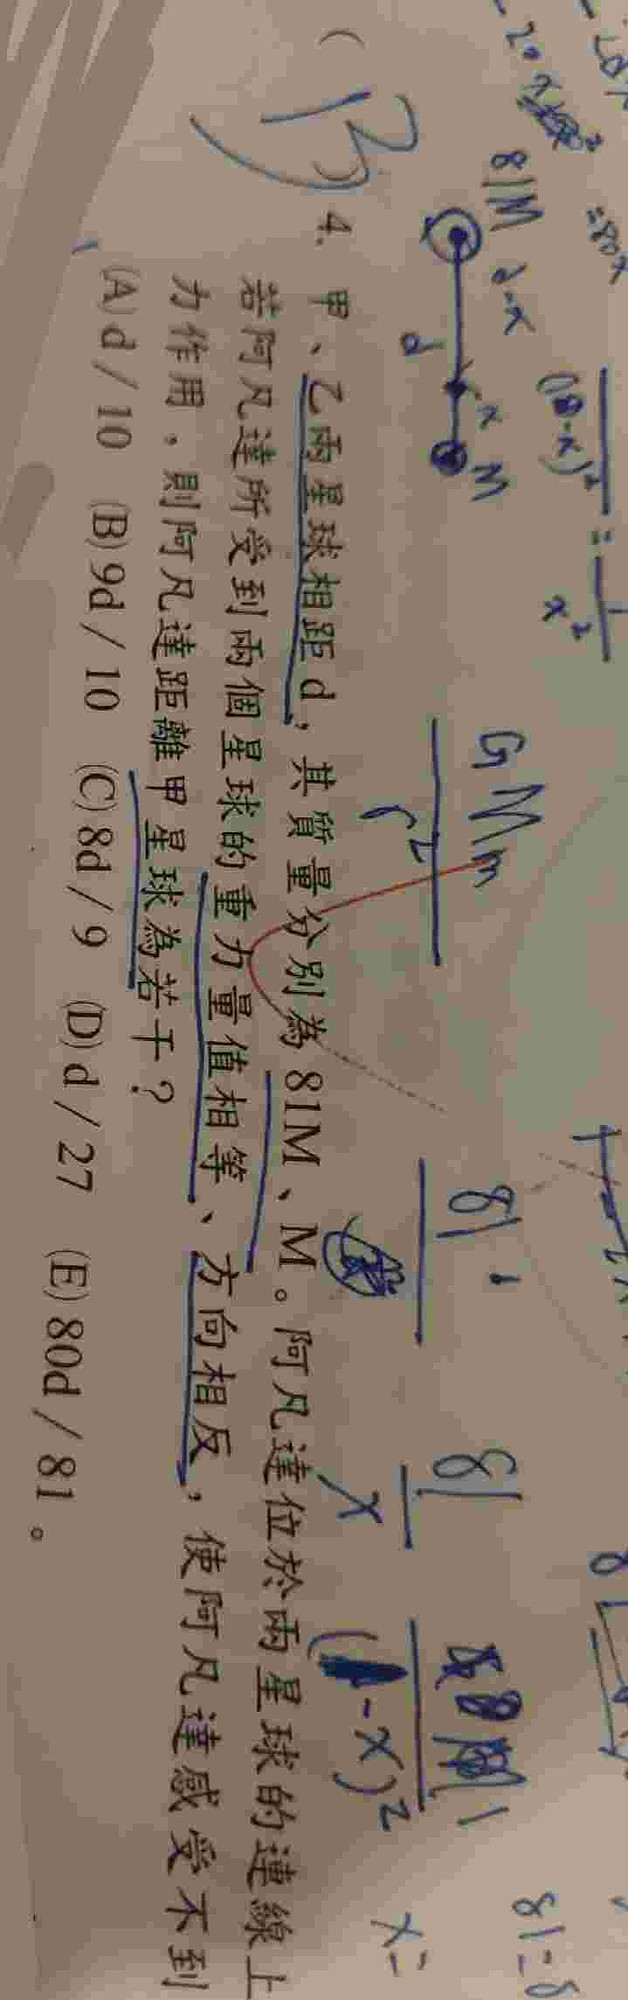 (B) 4. 甲、乙兩星球相距d，其質量分別為81M、M。阿凡達位於兩星球的連線上
若阿凡達所受到兩個星球的重力量值相等、方向相反，使阿凡達感受不到
力作用，則阿凡達距離甲星球為若干？
(A)d/10 (B)9d/10 (C)8d/9 (D)d/27 (E)80d/81。
81M d-x x M
d
GMm
r²
81
81
x
-x)²
x=
=80x
(d-x)² = 1
x²